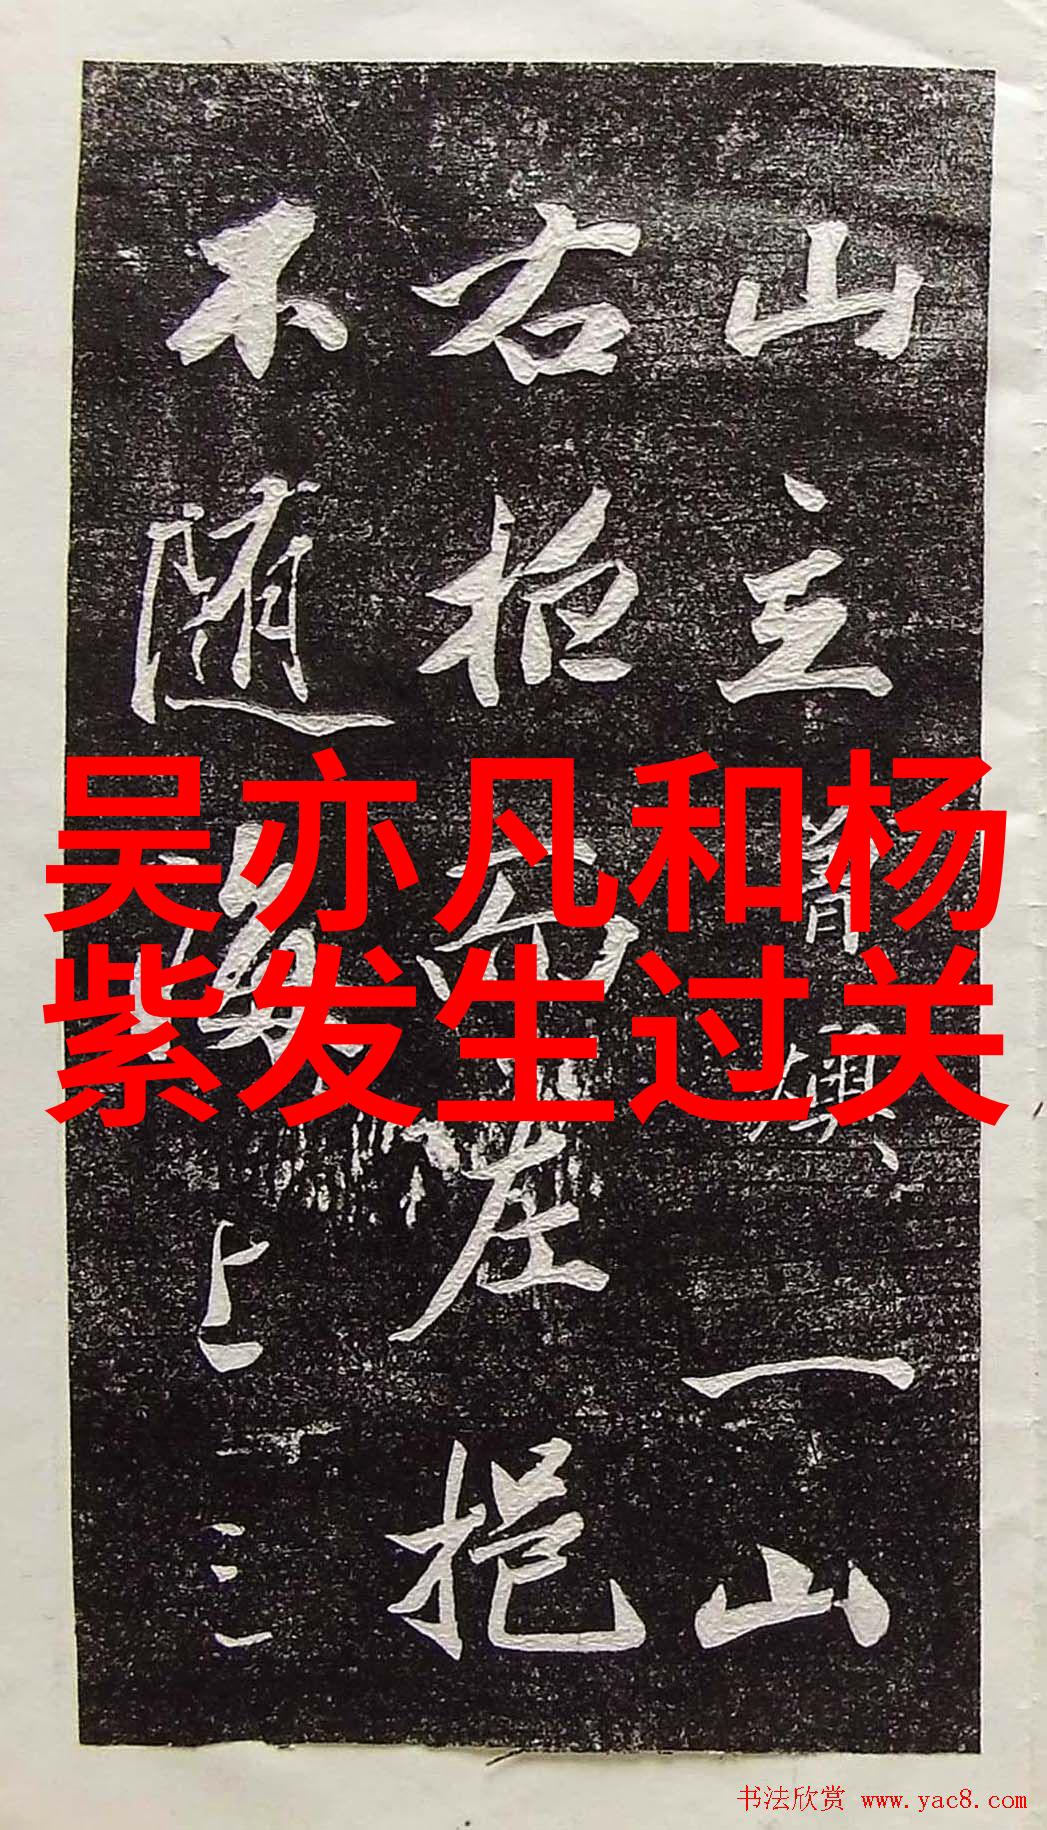 山主着與、一山
右拖而左挹
不随海上三
吴亦凡和杨
紫发生过关
书法欣赏 www.yac8.com